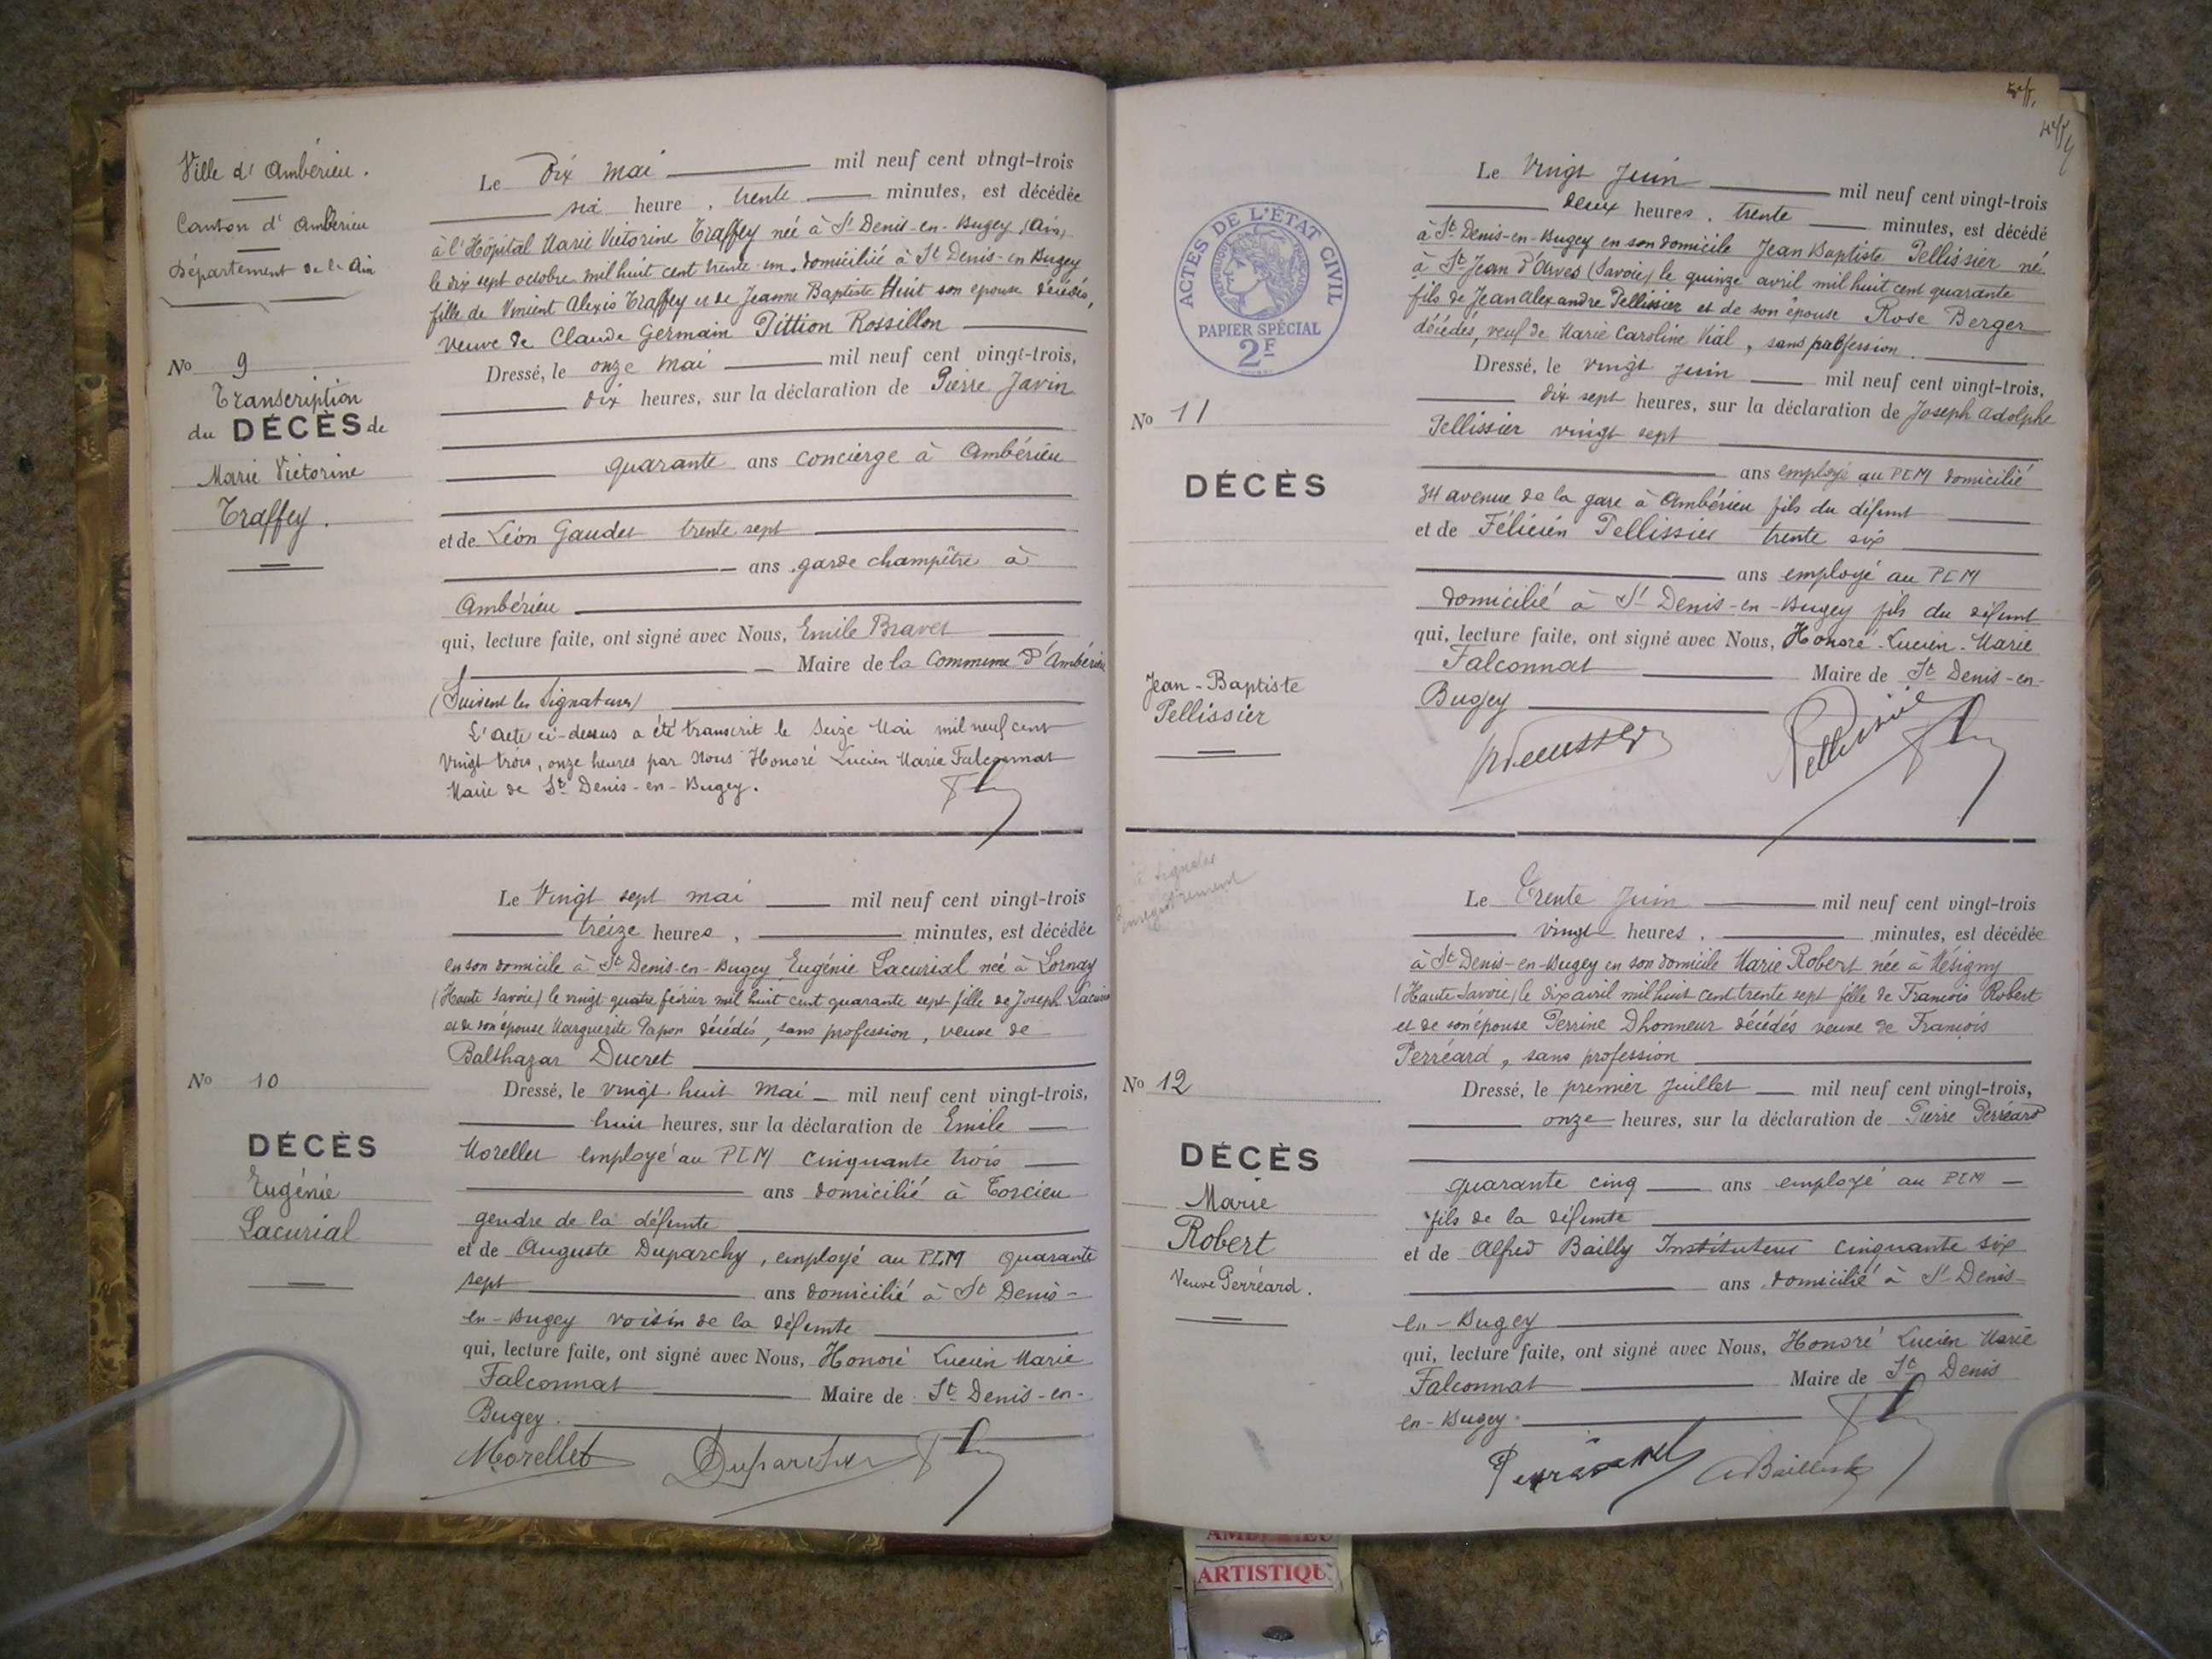 Ville d'Ambérieu.
Canton d'Ambérieu
Département de l'Ain
No 9
Transcription
du DÉCÈS de
Marie Victorine
Traffey.
Le Dix mai mil neuf cent vingt-trois
six heure, trente minutes, est décédée
à l'Hôpital Marie Victorine Traffey née à St Denis-en-Bugey (Ain)
le dix sept octobre mil huit cent trente-un, domiciliée à St Denis-en Bugey
fille de Vincent Alexis Traffey et de Jeanne Baptiste Huit son epouse décédés,
veuve de Claude Germain Pittion Rossillon
Dressé, le onze mai mil neuf cent vingt-trois,
dix heures, sur la déclaration de Pierre Javin
quarante ans concierge à Ambérieu
et de Léon Gaudet trente sept
ans garde champêtre à
Ambérieu
qui, lecture faite, ont signé avec Nous, Emile Bravet
Maire de la Commune d'Ambérieu
(Suivent les Signatures)
L'acte ci-dessus a été transcrit le Seize Mai mil neuf cent
vingt trois, onze heures par Nous Honoré Lucien Marie Falconnat
Maire de St Denis-en-Bugey.
No 10
DÉCÈS
Eugénie
Lacurial
Le Vingt sept mai mil neuf cent vingt-trois
treize heures, minutes, est décédée
en son domicile à St Denis-en-Bugey Eugénie Lacurial née à Lornay
(Haute Savoie) le vingt quatre février mil huit cent quarante sept fille de Joseph Lacurial
et de son épouse Marguerite Papon décédés, sans profession, veuve de
Balthazar Ducret
Dressé, le vingt huit Mai mil neuf cent vingt-trois,
huit heures, sur la déclaration de Emile
Morellet employé au PLM cinquante trois
ans domicilié à Torcieu
gendre de la défunte
et de Auguste Duparchy, employé au PLM quarante
sept ans domicilié à St Denis-
en-Bugey voisin de la défunte
qui, lecture faite, ont signé avec Nous, Honoré Lucien Marie
Falconnat Maire de St Denis-en-
Bugey.
Morellet Duparchy
ACTES DE L'ÉTAT CIVIL
PAPIER SPÉCIAL
2F
No 11
DÉCÈS
Jean-Baptiste
Pellissier
Le Vingt Juin mil neuf cent vingt-trois
deux heures, trente minutes, est décédé
à St Denis-en-Bugey en son domicile Jean Baptiste Pellissier né
à St Jean d'Arves (Savoie) le quinze avril mil huit cent quarante
fils de Jean Alexandre Pellissier et de son épouse Rose Berger
décédés, veuf de Marie Caroline Vial, sans profession.
Dressé, le vingt juin mil neuf cent vingt-trois,
dix sept heures, sur la déclaration de Joseph Adolphe
Pellissier vingt sept
ans employé au PLM domicilié
34 avenue de la gare à Ambérieu fils du défunt
et de Félicien Pellissier trente six
ans employé au PLM
domicilié à St Denis-en-Bugey fils du défunt
qui, lecture faite, ont signé avec Nous, Honoré-Lucien-Marie
Falconnat Maire de St Denis-en-
Bugey
Pellissier
à signaler
Enregistrement
No 12
DÉCÈS
Marie
Robert
Veuve Perréard.
Le Trente Juin mil neuf cent vingt-trois
vingt heures, minutes, est décédée
à St Denis-en-Bugey en son domicile Marie Robert née à Mésigny
(Haute Savoie) le dix avril mil huit cent trente sept fille de François Robert
et de son épouse Perrine Dhonneur décédés veuve de François
Perréard, sans profession
Dressé, le premier Juillet mil neuf cent vingt-trois,
onze heures, sur la déclaration de Pierre Perréard
quarante cinq ans employé au PLM
fils de la défunte
et de Alfred Bailly Instituteur cinquante six
ans domicilié à St Denis-
en-Bugey
qui, lecture faite, ont signé avec Nous, Honoré Lucien Marie
Falconnat Maire de St Denis
en-Bugey.
Perréard ABailly
ARTISTIQU